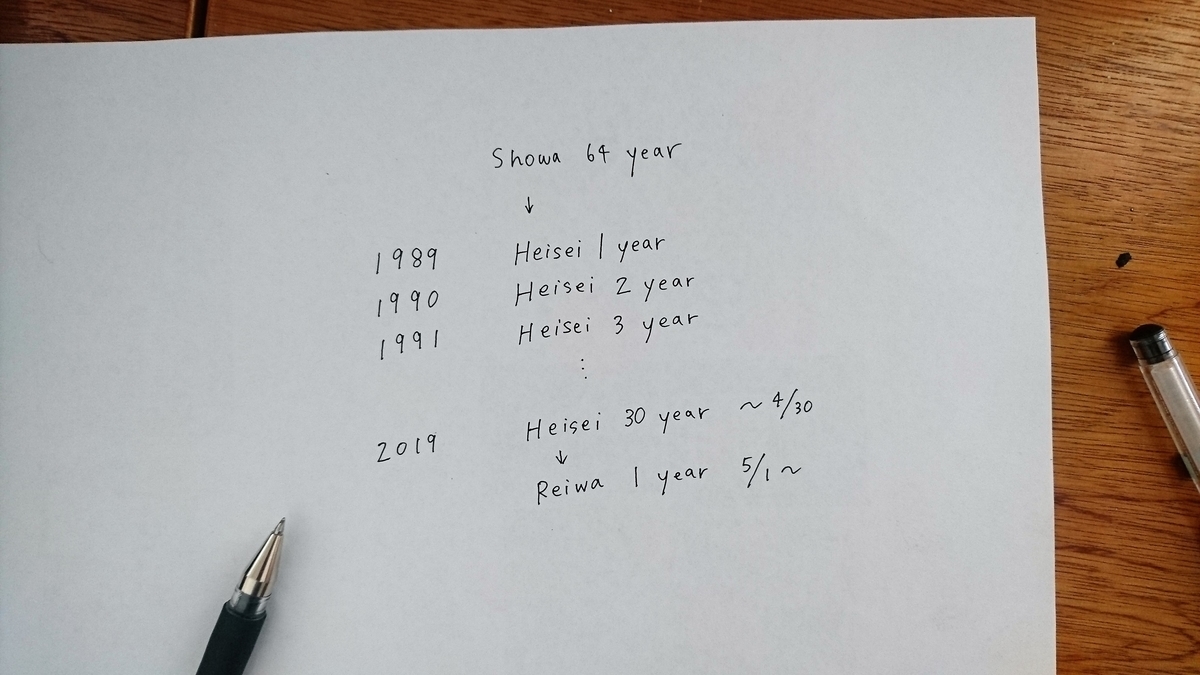 Showa 64 year
↓
1989 Heisei 1 year
1990 Heisei 2 year
1991 Heisei 3 year
⋮
2019 Heisei 30 year ~ 4/30
↓
Reiwa 1 year 5/1 ~